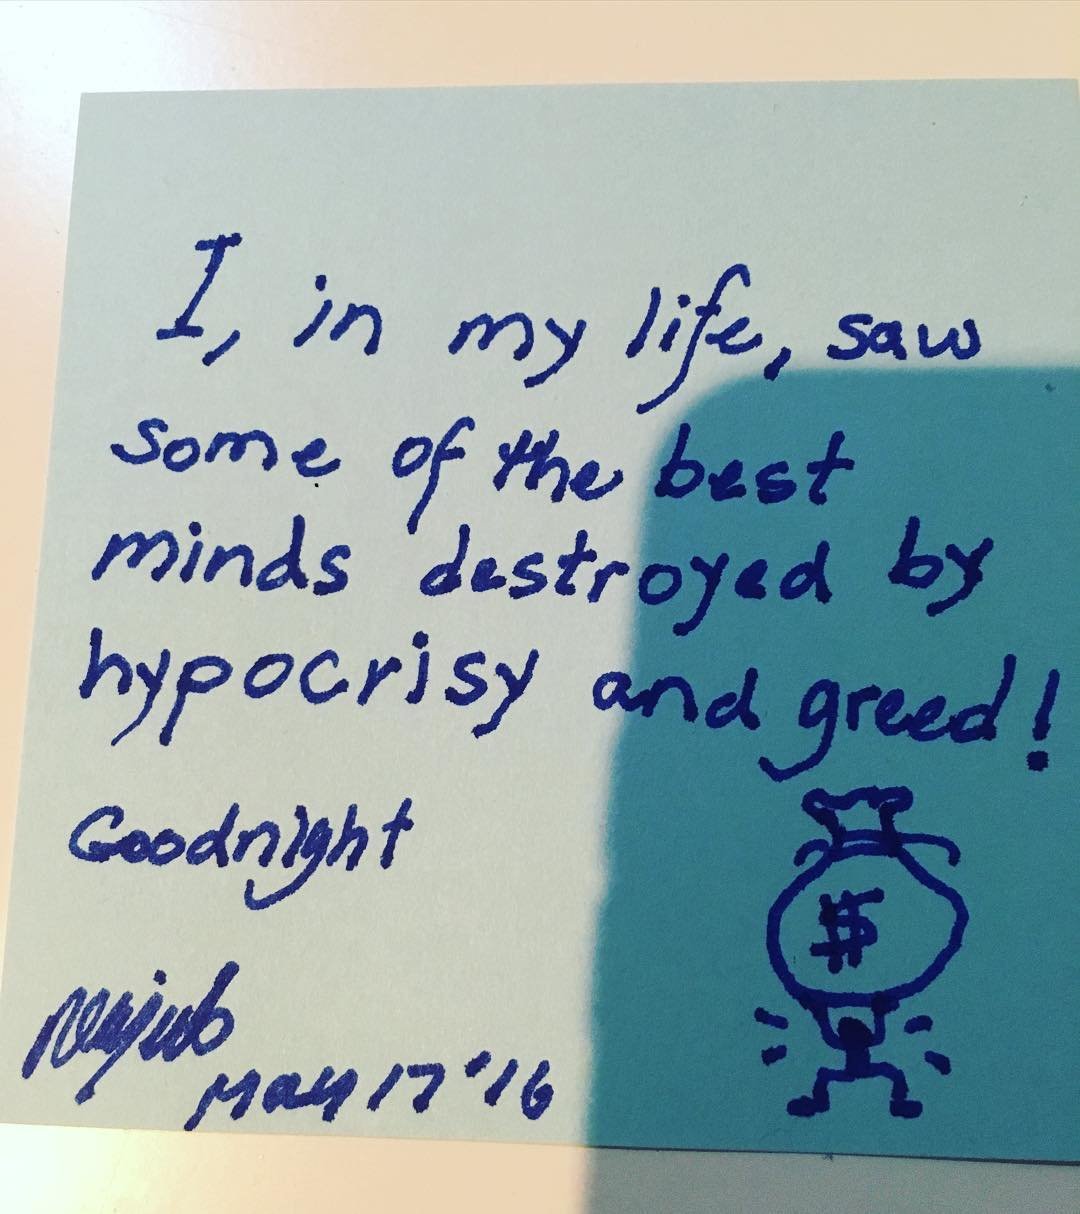 I, in my life, saw
some of the best
minds destroyed by
hypocrisy and greed!
Goodnight
$
May 17 '16